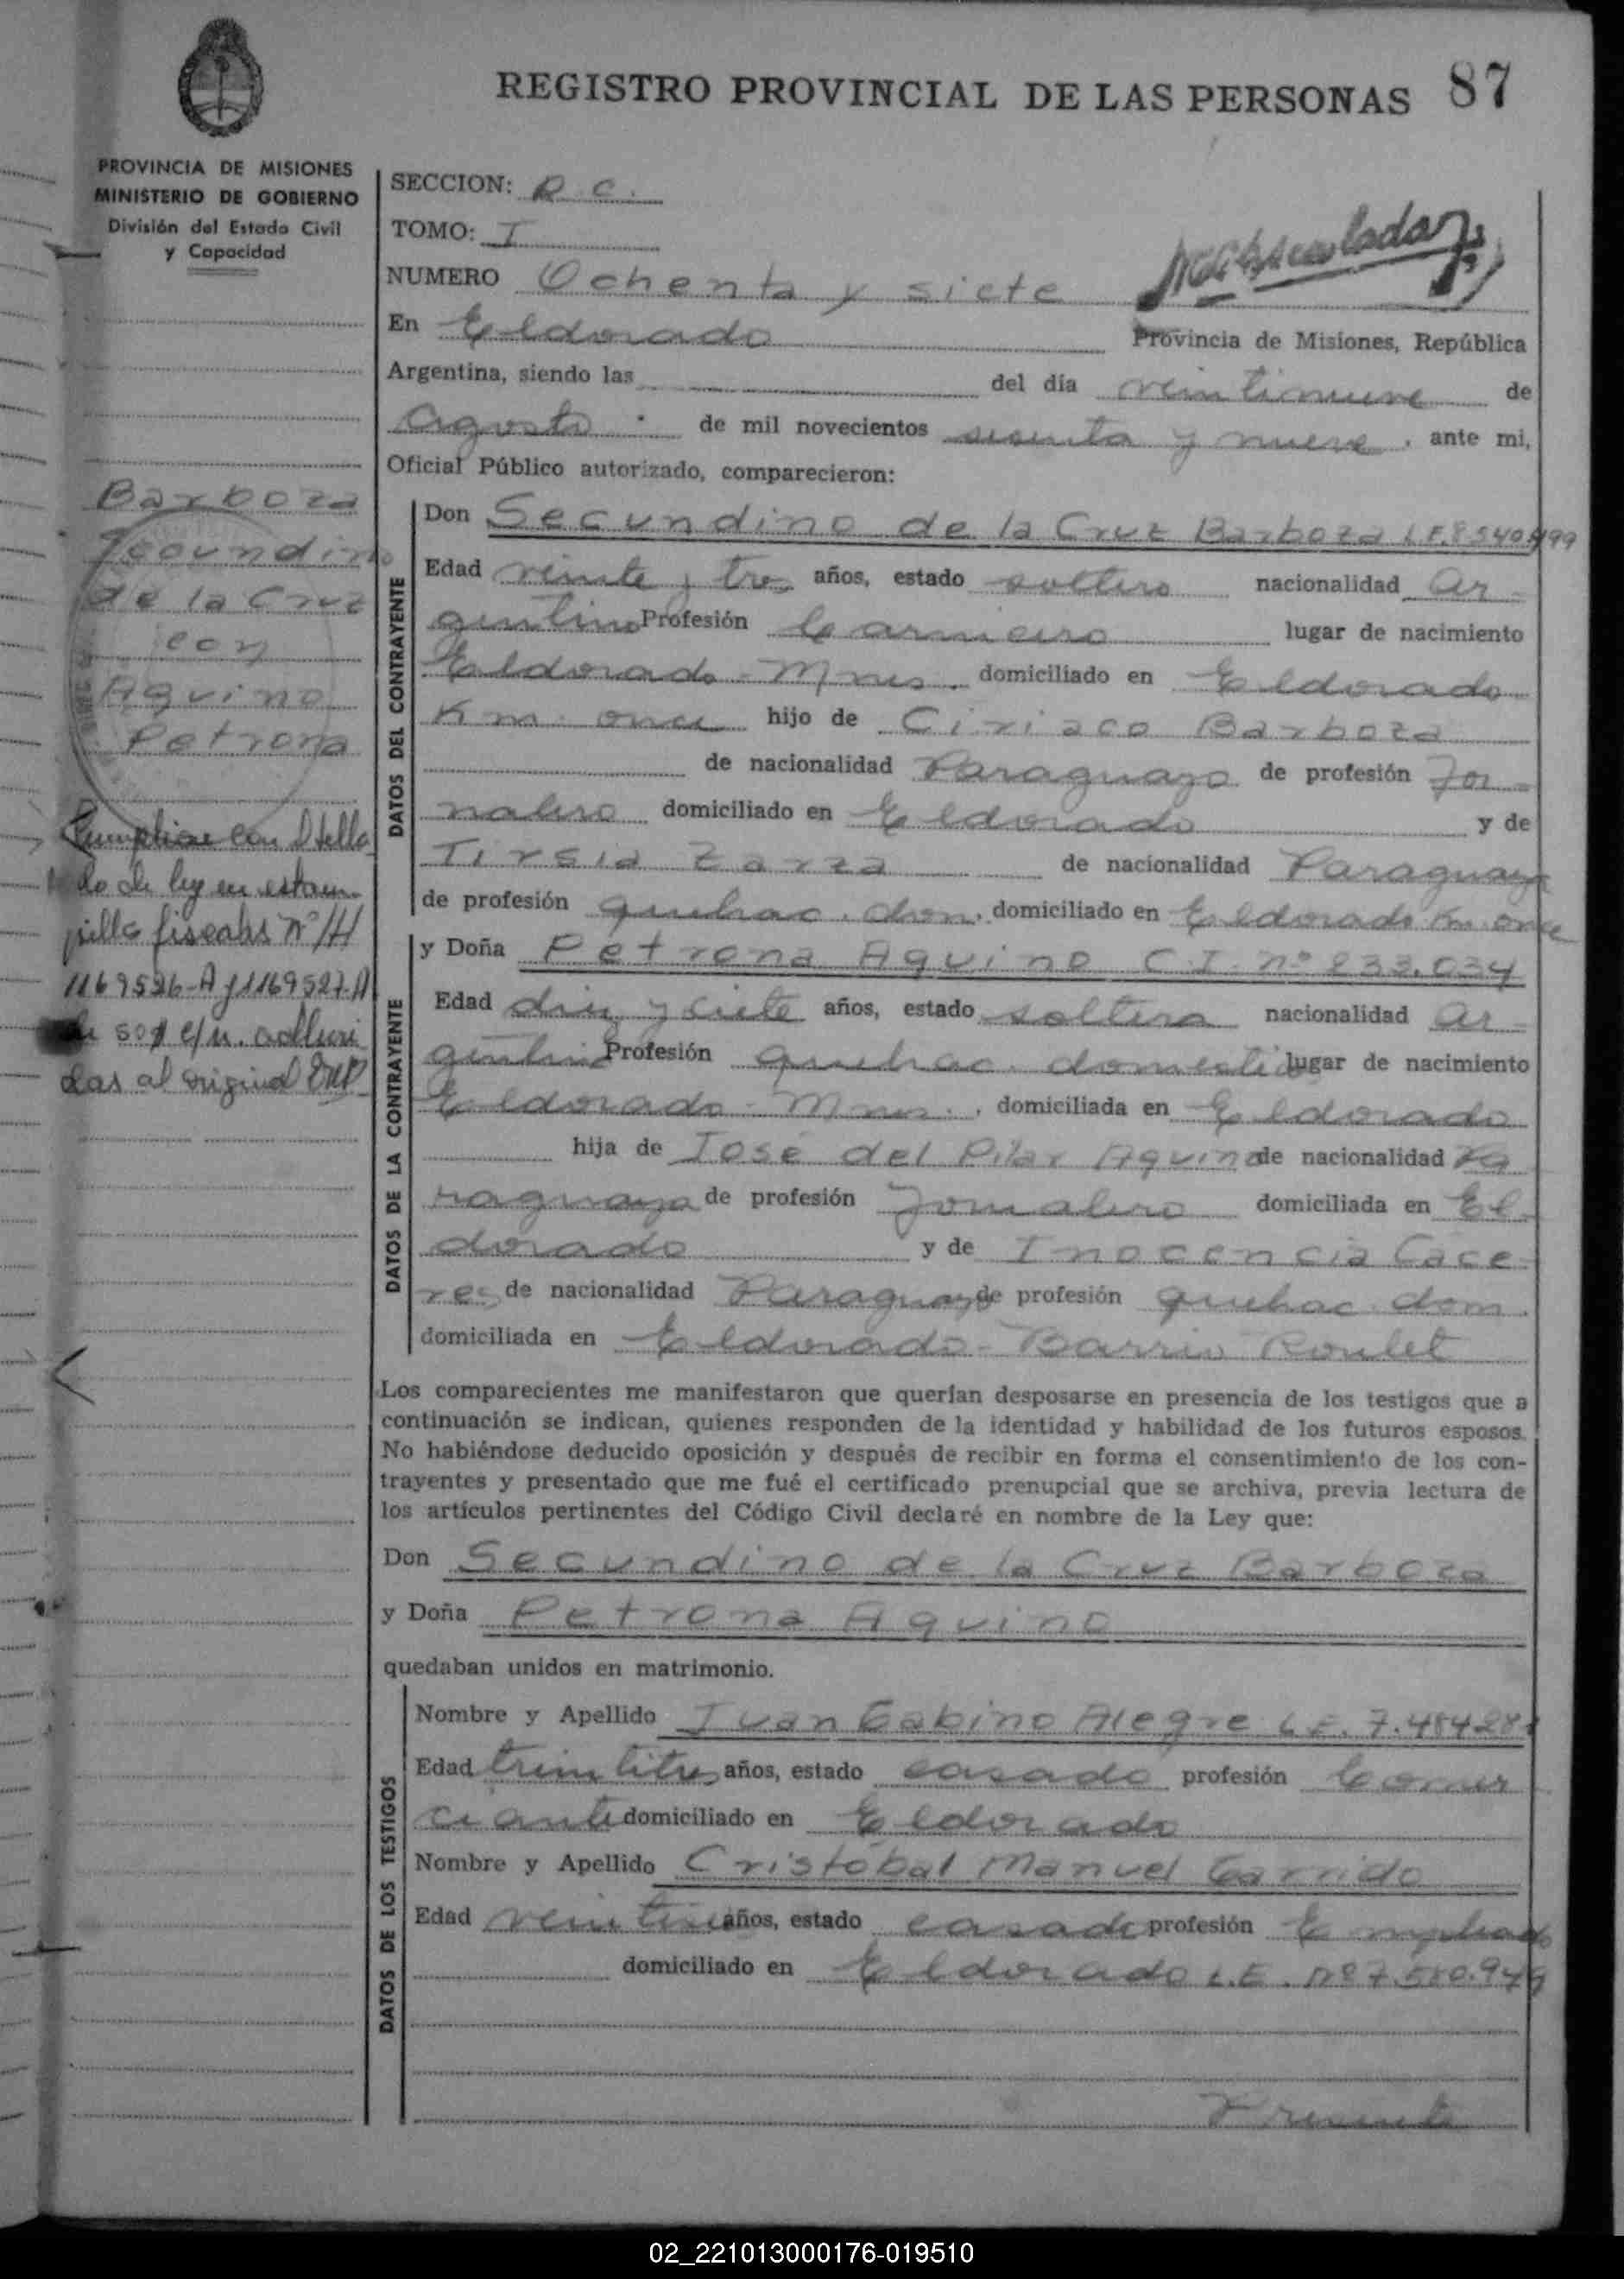 REGISTRO PROVINCIAL DE LAS PERSONAS 87
PROVINCIA DE MISIONES
MINISTERIO DE GOBIERNO
División del Estado Civil
y Capacidad
SECCION: R. C.
TOMO: I
NUMERO Ochenta y siete
En Eldorado Provincia de Misiones, República
Argentina, siendo las del día veintinueve de
Agosto de mil novecientos sesenta y nueve, ante mi,
Oficial Público autorizado, comparecieron:
Barboza
Secundino
de la Cruz
con
Aquino
Petrona
Cumpliose con el sella
do de ley en estam
pillas fiscales Nº/H
1169526-A y 1169527-A
de 50$ c/u. adheri
das al original
DATOS DEL CONTRAYENTE
Don Secundino de la Cruz Barboza L.E.
Edad veinte y tres años, estado soltero nacionalidad Ar
gentino Profesión Carnicero lugar de nacimiento
Eldorado - Mnes. domiciliado en Eldorado
Km. once hijo de Ciriaco Barboza
de nacionalidad Paraguayo de profesión Jor
nalero domiciliado en Eldorado y de
Tirsia Zarza de nacionalidad Paraguaya
de profesión quehac. dom. domiciliado en Eldorado Km. once
DATOS DE LA CONTRAYENTE
y Doña Petrona Aquino C.I. nº 233.034
Edad diez y siete años, estado soltera nacionalidad Ar
gentina Profesión quehac. domestic lugar de nacimiento
Eldorado - Mnes., domiciliada en Eldorado
hija de José del Pilar Aquino de nacionalidad Pa
raguaya de profesión Jornalero domiciliada en El
dorado y de Inocencia Cace
res de nacionalidad Paraguaya de profesión quehac. dom.
domiciliada en Eldorado - Barrio Roulet
Los comparecientes me manifestaron que querían desposarse en presencia de los testigos que a
continuación se indican, quienes responden de la identidad y habilidad de los futuros esposos.
No habiéndose deducido oposición y después de recibir en forma el consentimiento de los con-
trayentes y presentado que me fué el certificado prenupcial que se archiva, previa lectura de
los artículos pertinentes del Código Civil declaré en nombre de la Ley que:
Don Secundino de la Cruz Barboza
y Doña Petrona Aquino
quedaban unidos en matrimonio.
DATOS DE LOS TESTIGOS
Nombre y Apellido Juan Gabino Alegre L.E.
Edad treintitres años, estado casado profesión Comer
ciante domiciliado en Eldorado
Nombre y Apellido Cristóbal Manuel Garrido
Edad años, estado casado profesión Empleado
domiciliado en Eldorado L.E. Nº 7.580.949
Presente
02_221013000176-019510